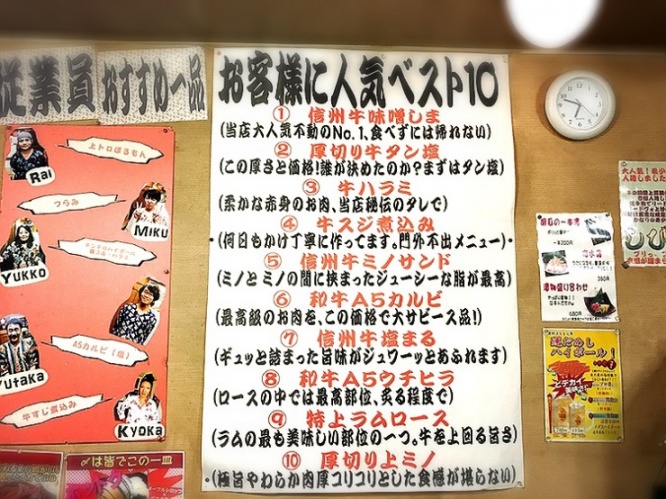 従業員おすすめ一品
上トロほるもん
Rai
つらみ
Miku
YUKKO
A5カルビ(塩)
Yutaka
牛すじ煮込み
Kyoka
〆は皆でこの一皿
お客様に人気ベスト10
① 信州牛味噌しま
(当店大人気不動のNo.1、食べずには帰れない)
② 厚切り牛タン塩
(この厚さと価格!誰が決めたのか?まずはタン塩)
③ 牛ハラミ
(柔かな赤身のお肉、当店秘伝のタレで)
④ 牛スジ煮込み
(何日もかけ丁寧に作ってます。門外不出メニュー)
⑤ 信州牛ミノサンド
(ミノとミノの間に挟まったジューシーな脂が最高)
⑥ 和牛A5カルビ
(最高級のお肉を、この価格で大サービス品!)
⑦ 信州牛塩まる
(ギュッと詰まった旨味がジュワーッとあふれます)
⑧ 和牛A5ウチヒラ
(ロースの中では最高部位、炙る程度で)
⑨ 特上ラムロース
(ラムの最も美味しい部位の一つ。牛を上回る旨さ)
⑩ 厚切り上ミノ
(極旨やわらか肉厚コリコリとした食感が堪らない)
680円
ハイボール!